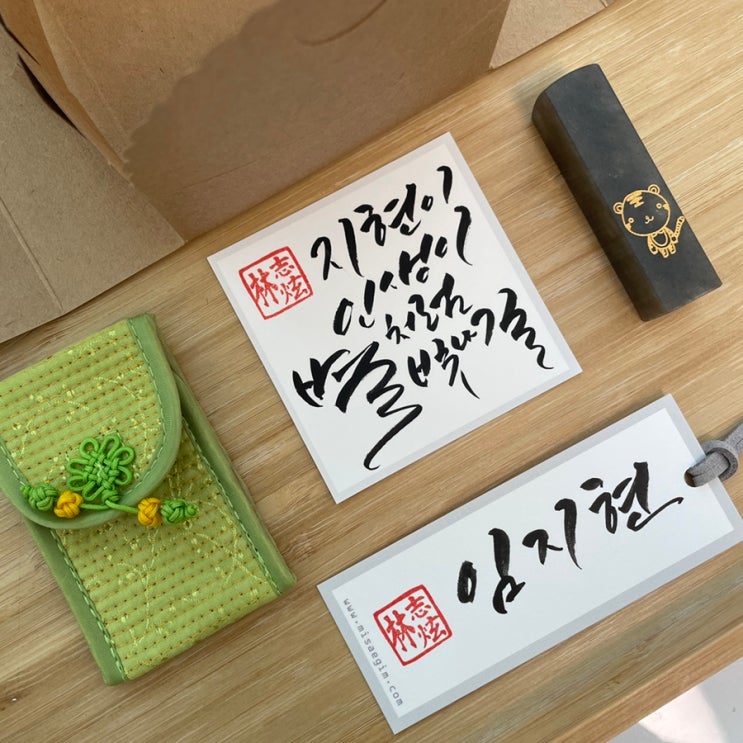 지현이
인생이
처럼
별 빛나길
林志炫
임지현
林志炫
www.misaegim.com